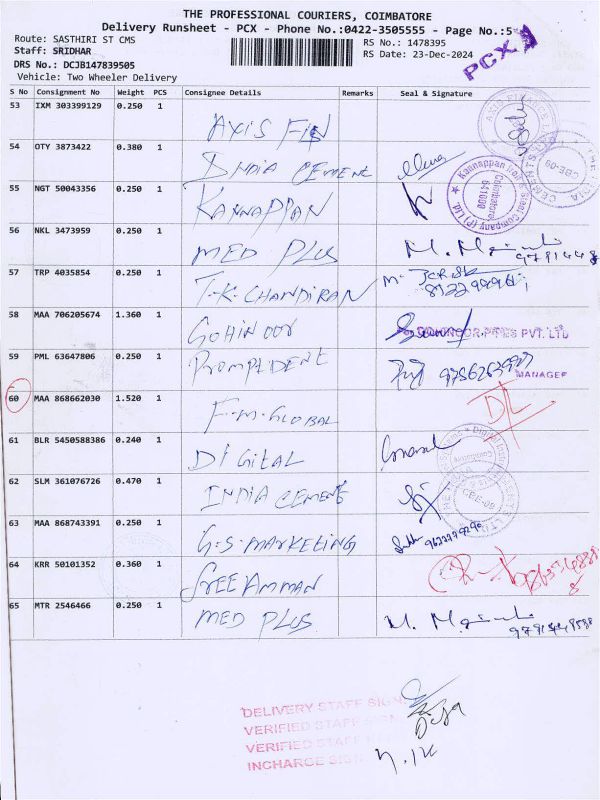 THE PROFESSIONAL COURIERS, COIMBATORE
Delivery Runsheet - PCX - Phone No.:0422-3505555 - Page No.:5
Route: SASTHIRI ST CMS
RS No.: 1478395
Staff: SRIDHAR
RS Date: 23-Dec-2024
PCX
DRS No.: DCJB147839505
Vehicle: Two Wheeler Delivery
S No Consignment No Weight PCS Consignee Details Remarks Seal & Signature
53 IXM 303399129 0.250 1 AXIS FIN
54 OTY 3873422 0.380 1 INDIA CEMENT
55 NGT 50043356 0.250 1 KANNAPPAN
Coimbatore
641009
CBE-09
56 NKL 3473959 0.250 1 MED PLUS
57 TRP 4035854 0.250 1 T.K. CHANDIRAN
58 MAA 706205674 1.360 1 GOHINOOR
PVT. LTD
59 PML 63647806 0.250 1 PROMPIDENT
MANAGER
60 MAA 868662030 1.520 1 F.M. GLOBAL DL
61 BLR 5450588386 0.240 1 DIGITAL
62 SLM 361076726 0.470 1 INDIA CEMENT
CBE-09
63 MAA 868743391 0.250 1 G.S. MARKETING
64 KRR 50101352 0.360 1 SREE AMMAN
65 MTR 2546466 0.250 1 MED PLUS
DELIVERY STAFF SIGN
VERIFIED STAFF
VERIFIED STAFF
INCHARGE SIGN